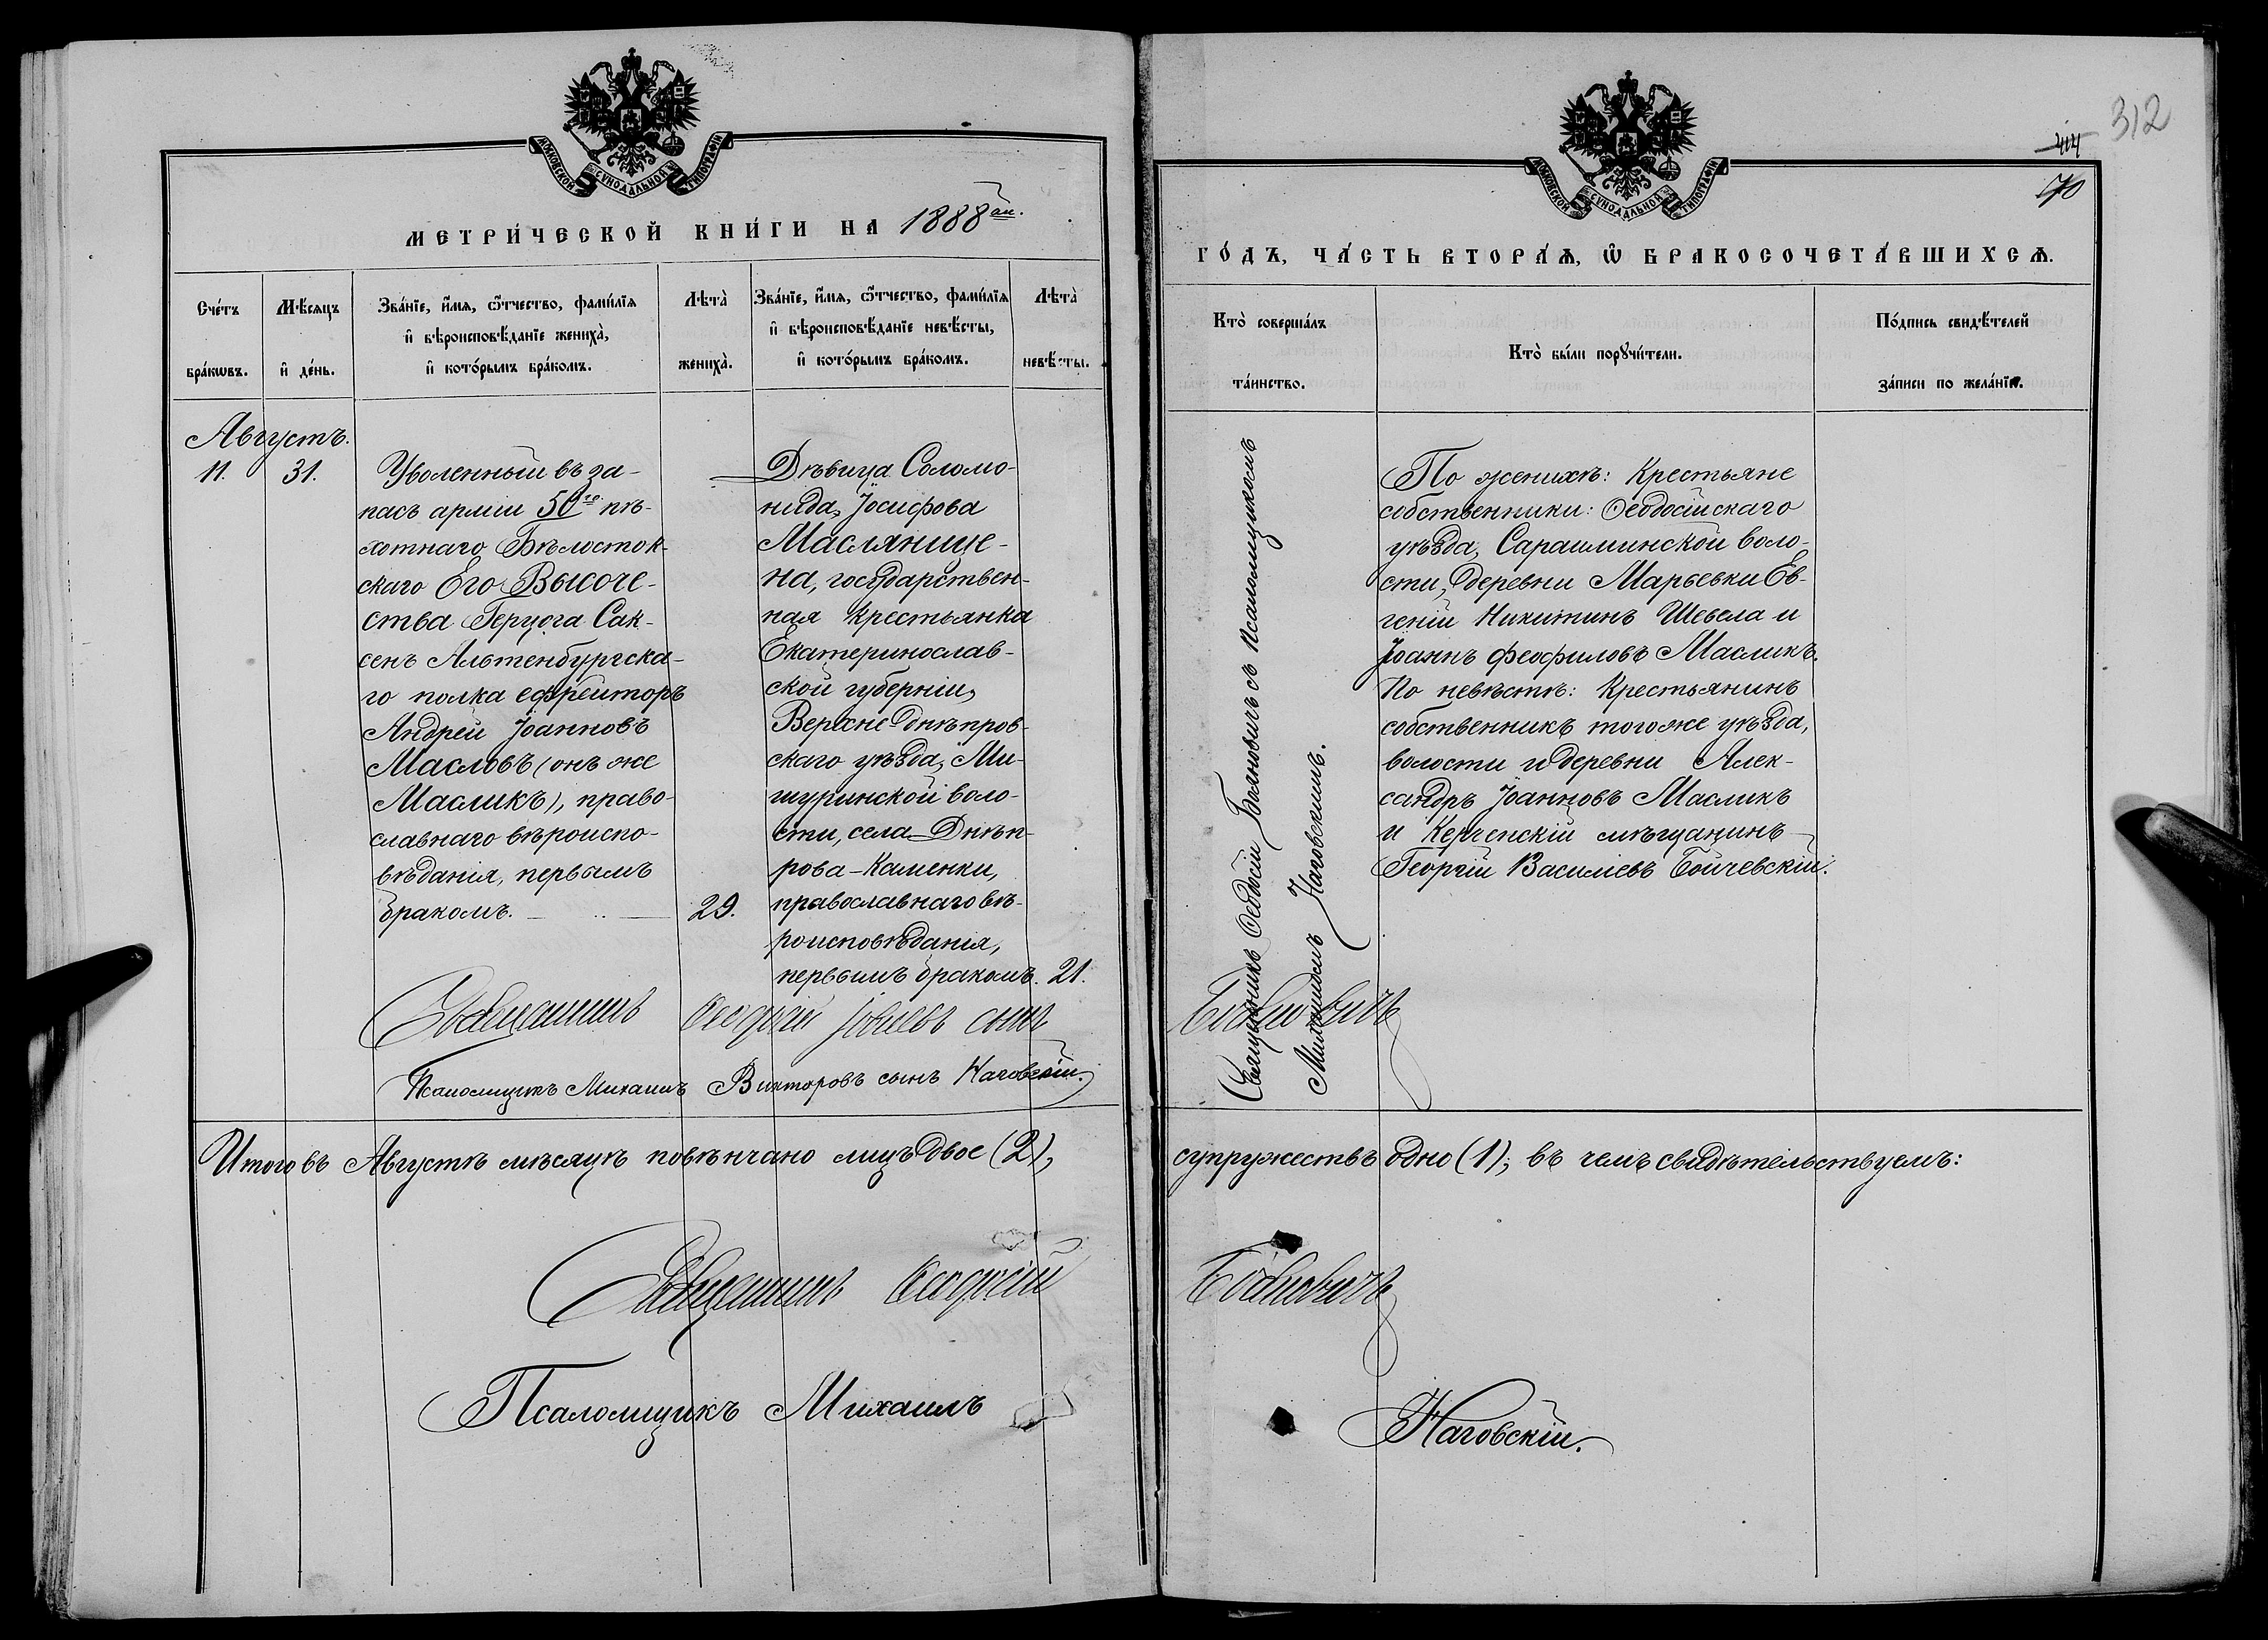 МОСКОВСКОЙ СѴНОДАЛЬНОЙ ТИПОГРАФІИ
МЕТРИ́ЧЕСКОЙ КНИ́ГИ НА 1888 ой.
Сче́тъ бра́кωвъ.
Мѣ́сяцъ и де́нь.
Зва́нїе, и́мѧ, ѿтчество, фами́лїѧ
и вѣроисповѣ́данїе жениха̀,
и кото́рымъ бра́комъ.
Лѣта̀ жениха̀.
Зва́нїе, и́мѧ, ѿтчество, фами́лїѧ
и вѣроисповѣ́данїе невѣ́сты,
и кото́рымъ бра́комъ.
Лѣта̀ невѣ́сты.
Августъ.
11. 31.
Уволенный въ за-
пасъ арміи 50го пѣ-
хотнаго Бѣлосток-
скаго Его Высоче-
ства Герцога Сак-
сенъ Альтенбургска-
го полка ефрейторъ
Андрей Іоанновъ
Масловъ (онъ же
Масликъ), право-
славнаго вѣроиспо-
вѣданія, первымъ
бракомъ. 29.
Дѣвица Соломо-
нида Іосифова
Маслянице-
на, государствен-
ная крестьянка
Екатеринослав-
ской губерніи,
Верхне Днѣпров-
скаго уѣзда, Ми-
шуринской воло-
сти, села Днѣп-
рова-Каменки,
православнаго вѣ-
роисповѣданія,
первымъ бракомъ. 21.
Священникъ Ѳеодосій Іовлевъ сынъ
Псаломщикъ Михаилъ Викторовъ сынъ Наговскій.
Итого въ Августѣ мѣсяцѣ повѣнчано лицъ двое (2),
Священникъ Ѳеодосій
Псаломщикъ Михаилъ
312
44
70
МОСКОВСКОЙ СѴНОДАЛЬНОЙ ТИПОГРАФІИ
ГО́ДЪ, ЧА́СТЬ ВТОРА́Ѧ, Ѡ БРАКОСОЧЕТА́ВШИХСѦ.
Кто̀ соверша́лъ
та́инство.
Кто̀ бы́ли порꙋчи́тели.
По́дпись свидѣ́телей
за́писи по жела́нїю.
Священникъ Ѳеодосій Богановичъ съ псаломщикомъ
Михаиломъ Наговскимъ.
По женихѣ: Крестьяне
собственники: Ѳеодосійскаго
уѣзда, Сарайминской воло-
сти, деревни Марьевки Ев-
геній Никитинъ Шевела и
Іоаннъ Феофиловъ Масликъ.
По невѣстѣ: Крестьянинъ
собственникъ того же уѣзда,
волости и деревни Алек-
сандръ Іоанновъ Масликъ
и Керченскій мѣщанинъ
Георгій Василіевъ Бойчевскій.
супружествъ одно (1); въ чемъ свидѣтельствуемъ:
Наговскій.